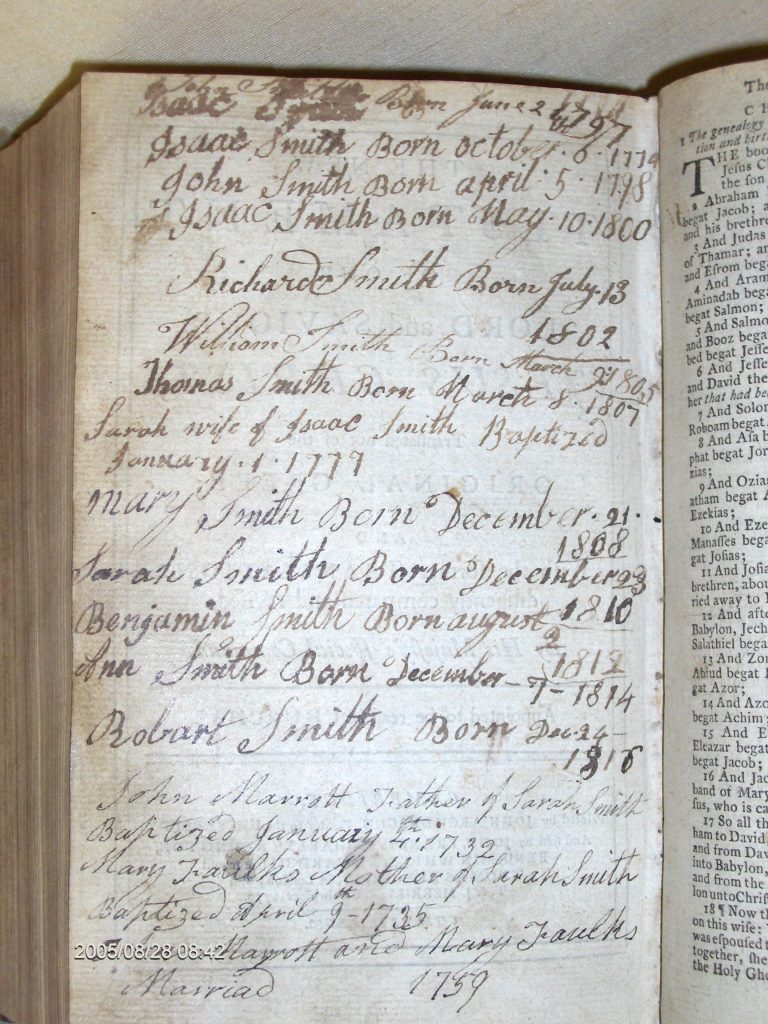 Isaac Born June 2 1797
Isaac Smith Born october. 6. 1774
John Smith Born april. 5. 1798
Isaac Smith Born May. 10. 1800
Richard Smith Born July. 13
1802
William Smith Born March 9 1805
Thomas Smith Born March 8. 1807
Sarah wife of Isaac Smith Baptized
January. 1. 1779
Mary Smith Born December. 21.
1808
Sarah Smith Born December 23
1810
Benjamin Smith Born august
2 1812
Ann Smith Born December
7 - 1814
Robart Smith Born Dec. 24 -
1816
John Marrott Father of Sarah Smith
Baptized January 4th. 1732
Mary Faulks Mother of Sarah Smith
Baptized April 9th - 1735
Marrott and Mary Faulks
Marriad 1759
2005/08/28 08:42
The
1 The genealogy
tion and birt
THE boo
Jesus C
the son
2 Abraham
begat Jacob; a
and his brethre
3 And Judas
of Thamar; an
and Esrom bega
4 And Aram
Aminadab bega
begat Salmon;
5 And Salmo
and Booz bega
bed begat Jesse
6 And Jesse
and David the
her that had be
7 And Solor
Roboam begat
8 And Asa b
phat begat Jor
zias;
9 And Ozias
atham begat A
Ezekias;
10 And Eze
Manasses bega
gat Josias;
11 And Josia
brethren, abou
ried away to
12 And afte
Babylon, Jech
Salathiel begat
13 And Zor
Abiud begat
gat Azor;
14 And Azo
begat Achim;
15 And E
Eleazar begat
begat Jacob;
16 And Jac
band of Mary
sus, who is ca
17 So all th
ham to David
and from Dav
into Babylon,
and from the
lon unto Chris
18 ¶ Now th
on this wise:
was espoused t
together, she
the Holy Gho